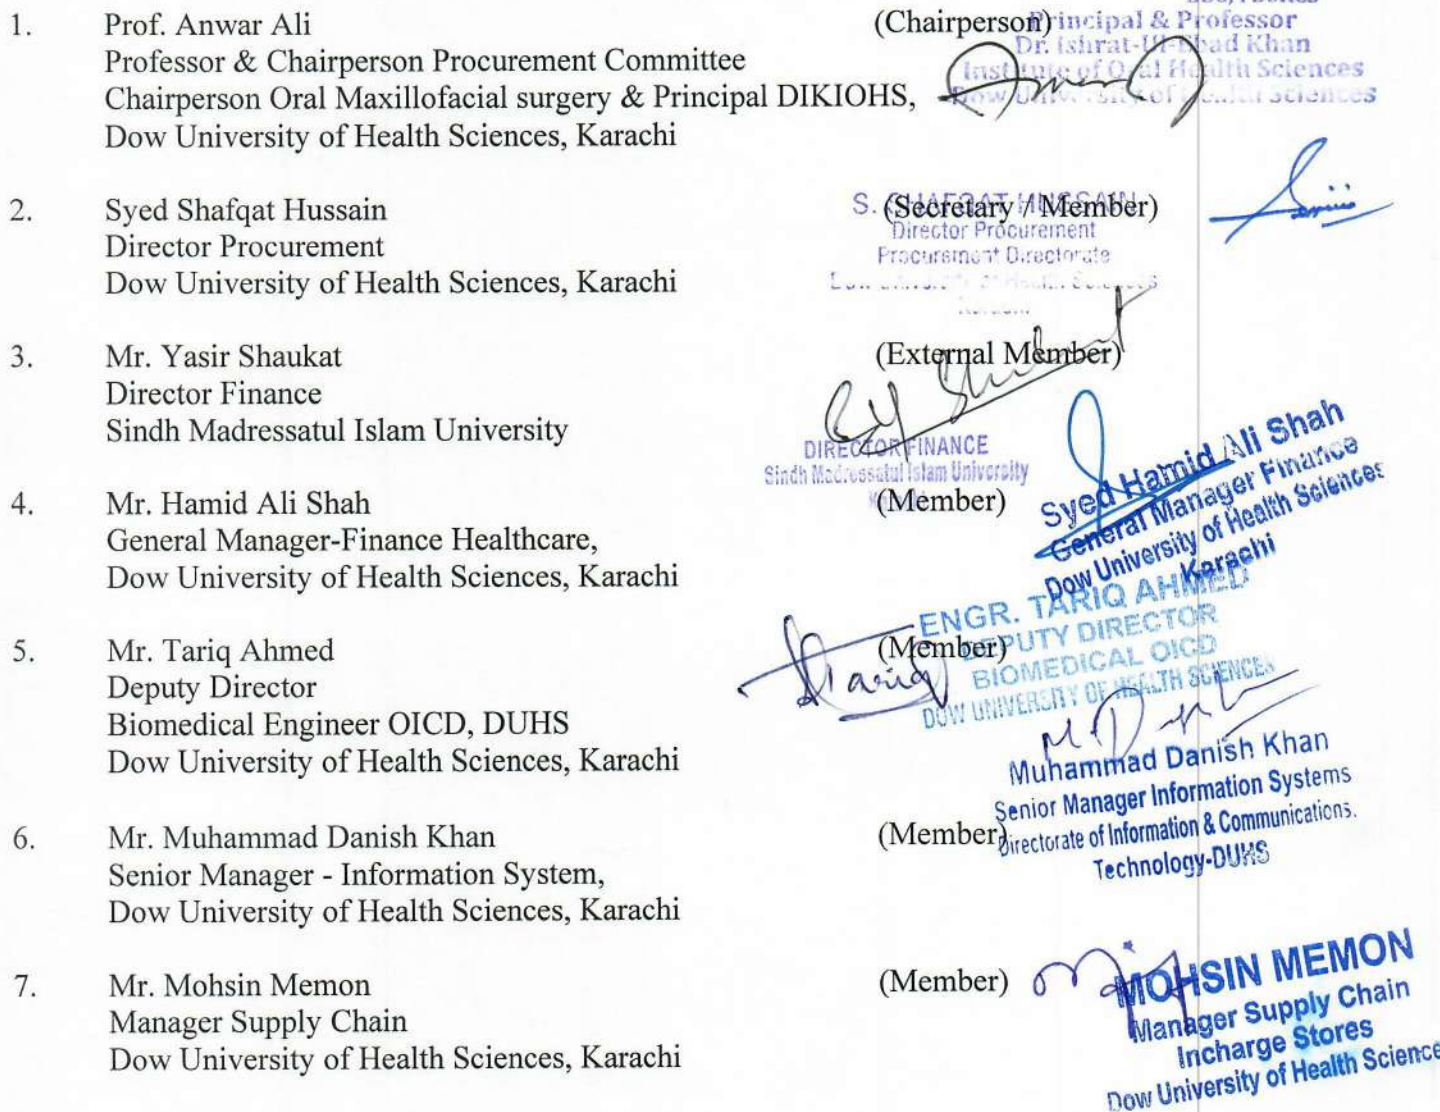 1. Prof. Anwar Ali (Chairperson)
Professor & Chairperson Procurement Committee
Chairperson Oral Maxillofacial surgery & Principal DIKIOHS,
Dow University of Health Sciences, Karachi
Principal & Professor
Dr. Ishrat-Ul-Ebad Khan
Institute of Oral Health Sciences
Dow University of Health Sciences
2. Syed Shafqat Hussain (Secretary / Member)
Director Procurement
Dow University of Health Sciences, Karachi
S. SHAFQAT HUSSAIN
Director Procurement
Procurement Directorate
Dow University of Health Sciences
Karachi
3. Mr. Yasir Shaukat (External Member)
Director Finance
Sindh Madressatul Islam University
DIRECTOR FINANCE
Sindh Madressatul Islam University
4. Mr. Hamid Ali Shah (Member)
General Manager-Finance Healthcare,
Dow University of Health Sciences, Karachi
Syed Hamid Ali Shah
General Manager Finance
Dow University of Health Sciences
Karachi
5. Mr. Tariq Ahmed (Member)
Deputy Director
Biomedical Engineer OICD, DUHS
Dow University of Health Sciences, Karachi
Tariq
ENGR. TARIQ AHMED
DEPUTY DIRECTOR
BIOMEDICAL OICD
DOW UNIVERSITY OF HEALTH SCIENCES
6. Mr. Muhammad Danish Khan (Member)
Senior Manager - Information System,
Dow University of Health Sciences, Karachi
Muhammad Danish Khan
Senior Manager Information Systems
Directorate of Information & Communications.
Technology-DUHS
7. Mr. Mohsin Memon (Member)
Manager Supply Chain
Dow University of Health Sciences, Karachi
MOHSIN MEMON
Manager Supply Chain
Incharge Stores
Dow University of Health Science